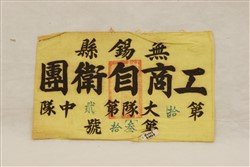 無錫縣
工商自衛團
第拾大隊第貳中隊
第叁拾號